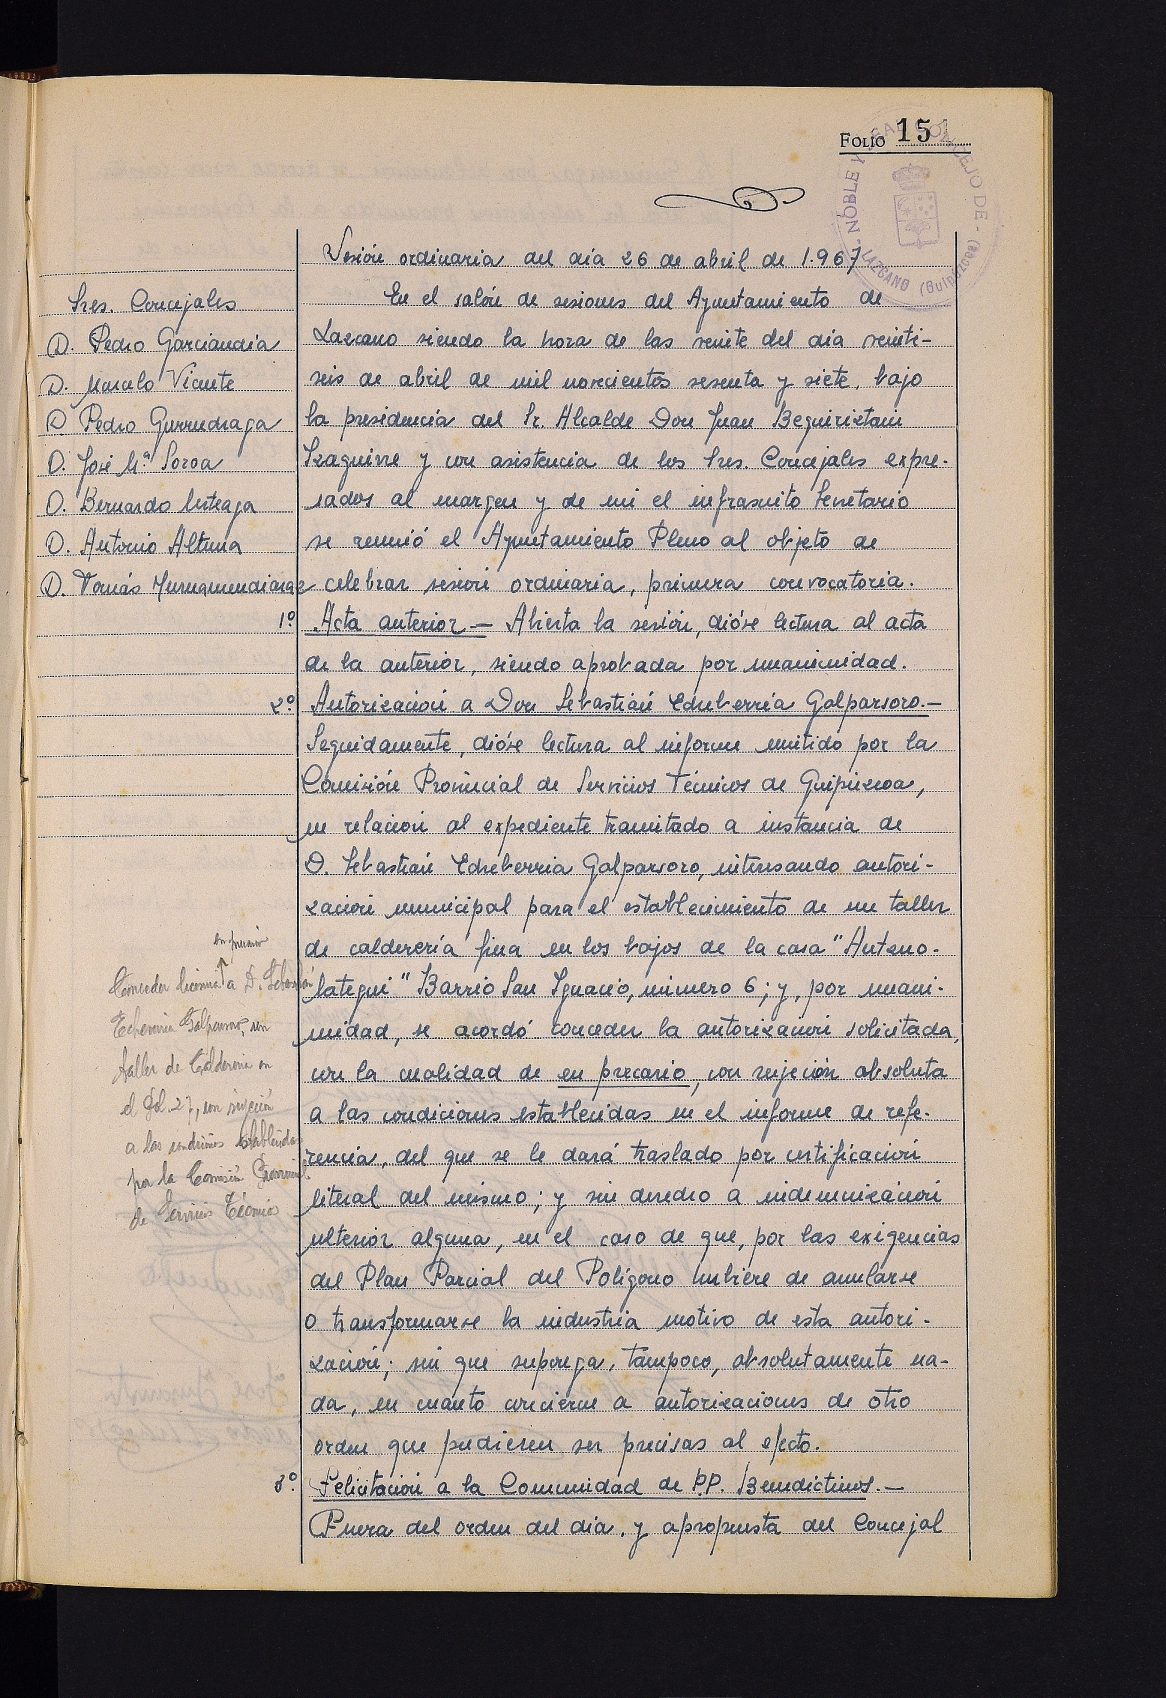 Folio 151
NOBLE Y LEAL CONCEJO DE - LAZCANO (Guipúzcoa)
Sesión ordinaria del día 26 de abril de 1.967
Sres. Concejales
D. Pedro Garciandia
D. Marcelo Vicente
D. Pedro Gurruchaga
D. José Mª Soroa
D. Bernardo Urteaga
D. Antonio Altuna
D. Tomás
En el salón de sesiones del Ayuntamiento de
Lazcano siendo la hora de las veinte del día veinti-
seis de abril de mil novecientos sesenta y siete, bajo
la presidencia del Sr. Alcalde Don Juan Beguiristain
Izaguirre y con asistencia de los Sres. Concejales expre-
sados al margen y de mi el infrascrito Secretario
se reunió el Ayuntamiento Pleno al objeto de
celebrar sesión ordinaria, primera convocatoria.
1º Acta anterior — Abierta la sesión, dióse lectura al acta
de la anterior, siendo aprobada por unanimidad.
2º. Autorización a Don Sebastián Echeberría Galparsoro.—
Seguidamente, dióse lectura al informe emitido por la
Comisión Provincial de Servicios Técnicos de Guipúzcoa,
en relación al expediente tramitado a instancia de
D. Sebastián Echeberria Galparsoro, interesando autori-
zación municipal para el establecimiento de un taller
de calderería fina en los bajos de la casa "Anteno-
lategui" Barrio San Ignacio, número 6; y, por unani-
midad, se acordó conceder la autorización solicitada,
con la cualidad de en precario, con sujeción absoluta
a las condiciones establecidas en el informe de refe-
rencia, del que se le dará traslado por certificación
literal del mismo; y sin derecho a indemnización
ulterior alguna, en el caso de que, por las exigencias
del Plan Parcial del Polígono hubiere de anularse
o transformarse la industria motivo de esta autori-
zación; sin que suponga, tampoco, absolutamente na-
da, en cuanto concierne a autorizaciones de otro
orden que pudiesen ser precisas al efecto.
en precario
Conceder licencia a D. Sebastián
Echeverria Galparsoro, un
taller de Caldereria en
el Pol. 27, con sujeción
a las condiciones establecidas
por la Comisión Provincial
de Servicios Técnicos
3º. Felicitación a la Comunidad de P.P. Benedictinos.—
Fuera del orden del día, y apropuesta del Concejal